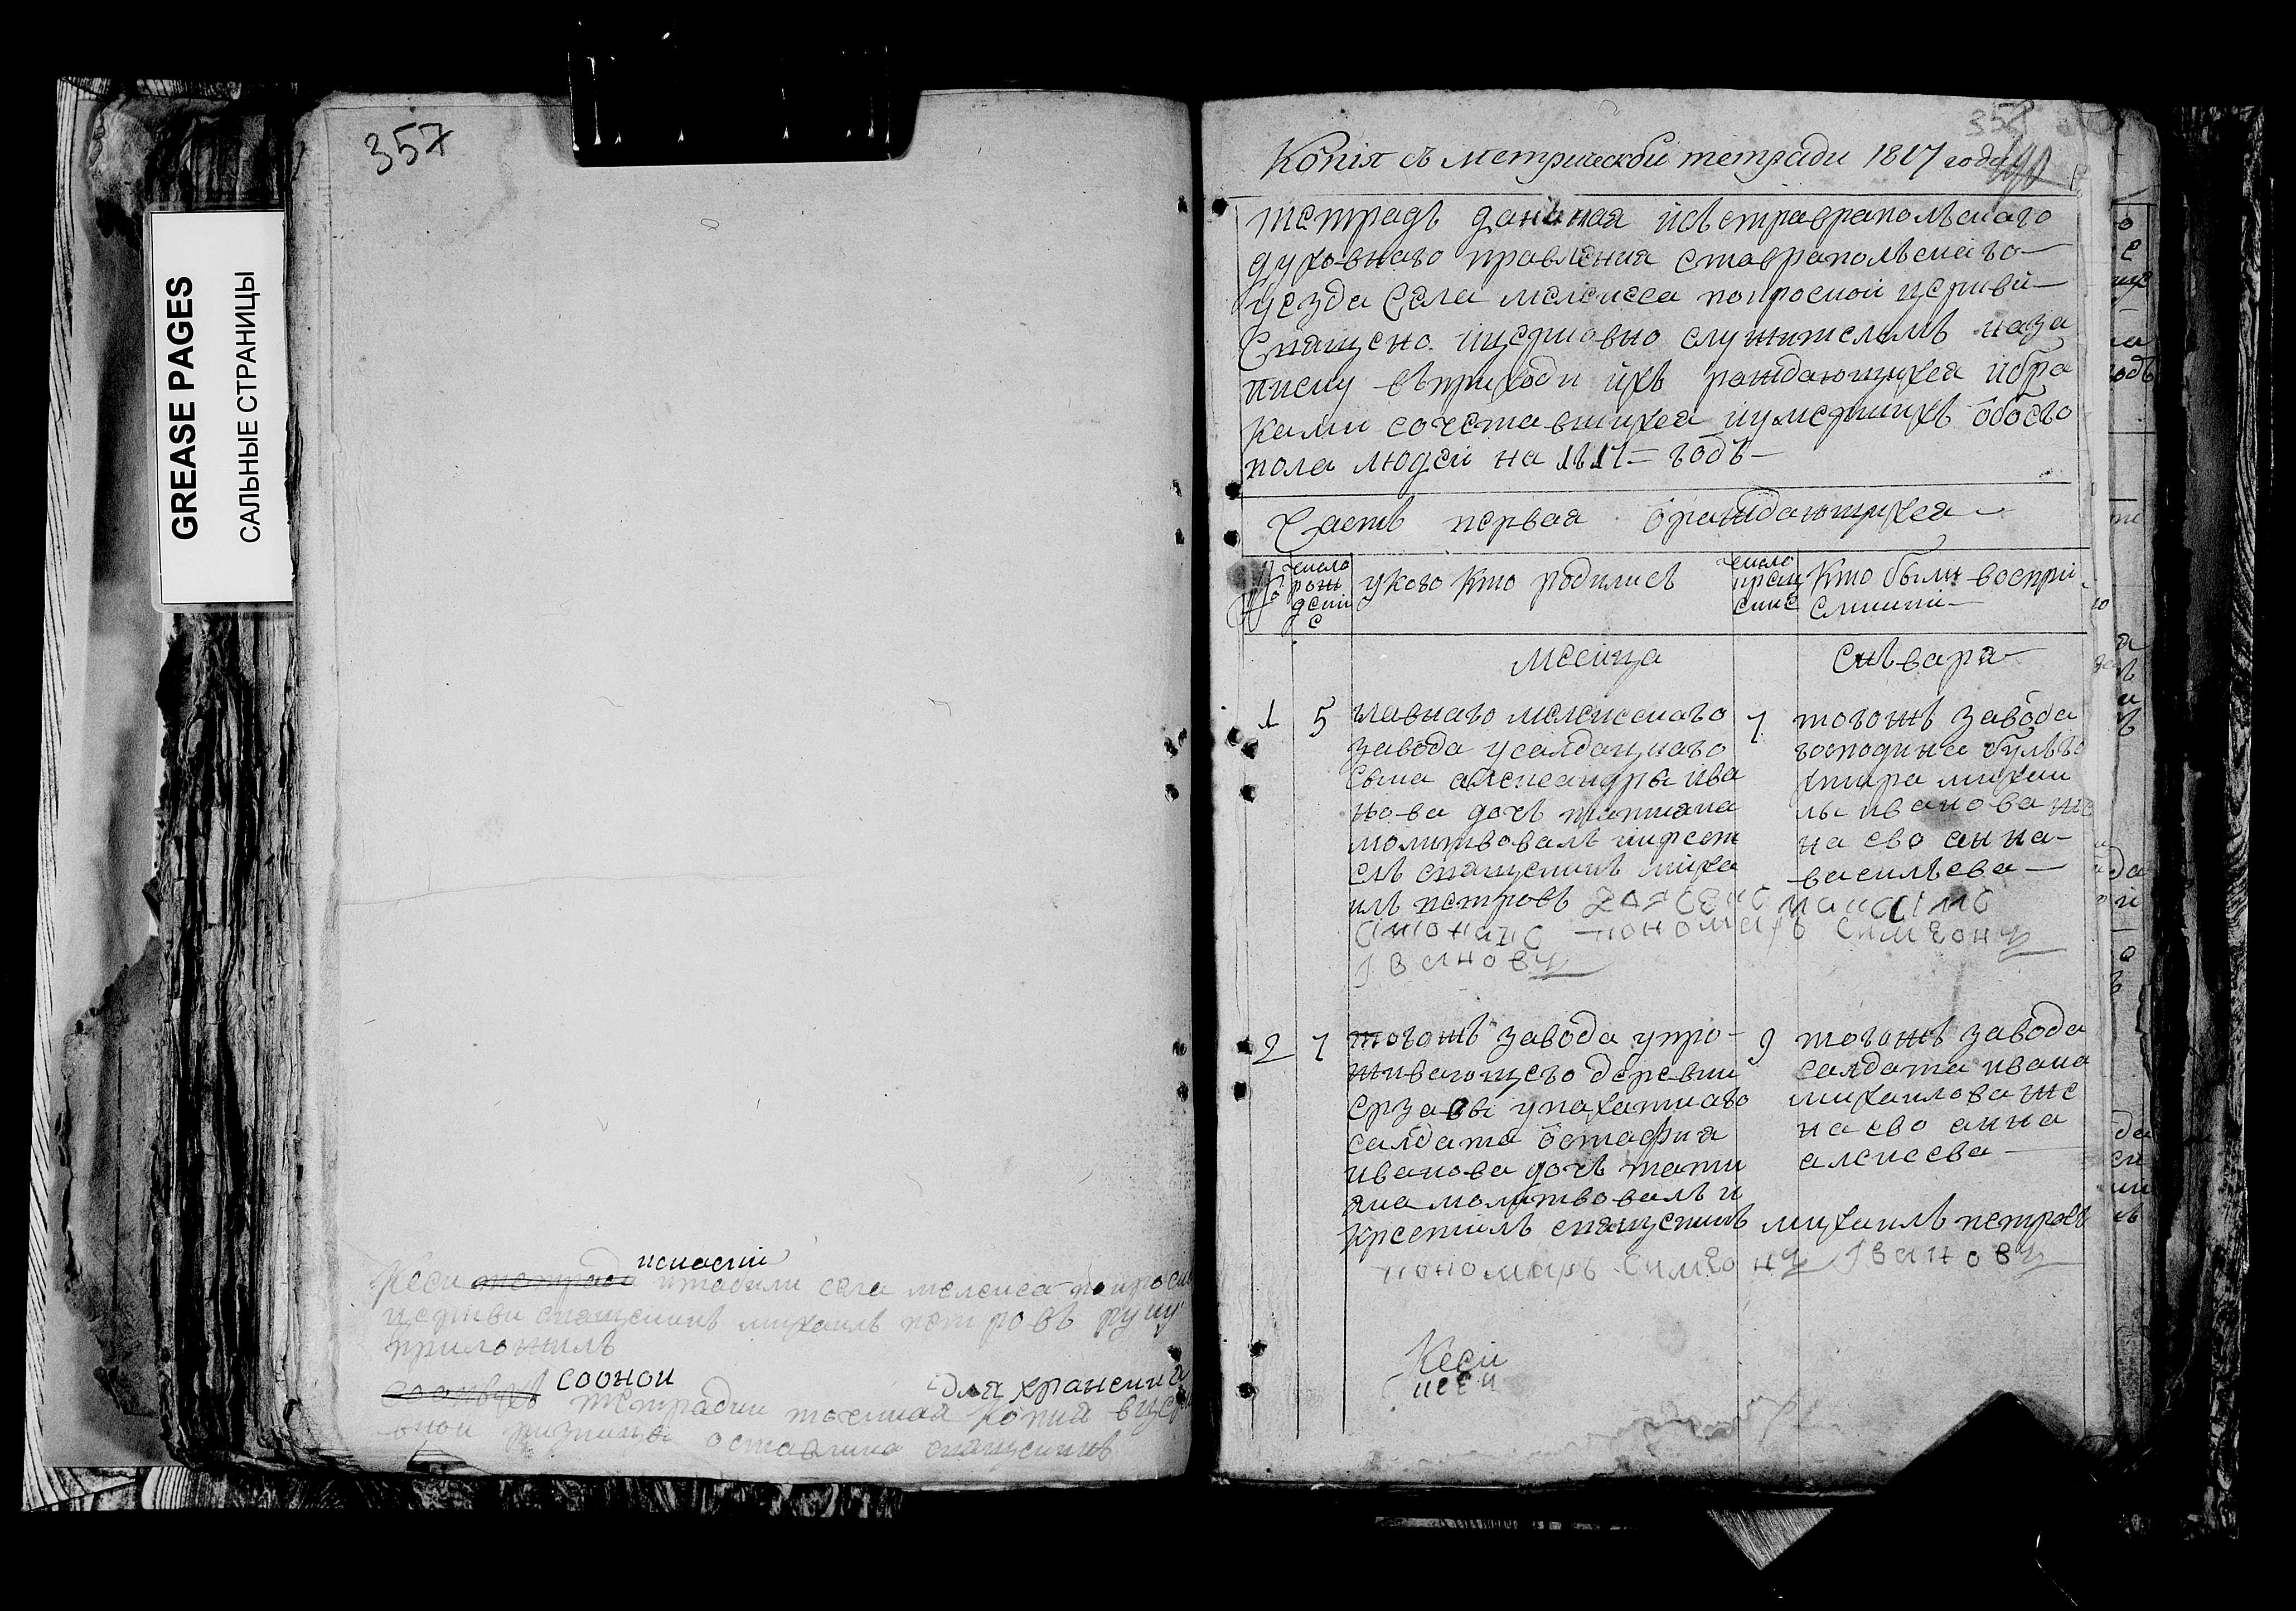 GREASE PAGES
САЛЬНЫЕ СТРАНИЦЫ
357
исласти
церкви священникъ михаилъ петровъ руку
приложилъ
соонои для хранения
тетрадии точная копия
ризнице оставлена священникъ
358
Копiя съ метрической тетради 1817 года
тетрадь данная изъ стравраполъскаго
духовнаго правления ставрапольскаго
уезда села мелекеса покроской церкви
Священо ицерковно служителемъ наза
писку въприходи ихъ раждающихся ибра
ками сочетавшихся иумерших обоего
пола людей на 1817 годъ
Часть первая ораждающихся
№ число рожденiе
укого кто родились
число крещение
кто были воспри
емники
месица
енъваря
1 5 главнаго мелекескаго
завода усалдацкаго
сына александры ива
нова дочь татиана
молитвовалъ икрест
елъ священикъ миха
илъ петровъ
7 тогожъ завода
господина
михаи
лы иванова же
на ево анна
васильева
пономарь Симеонъ
Iвановъ
2 7 тогожъ завода упро
живающего деревни
ерзавы упахатнаго
салдата остафия
иванова дочь тати
яна молитвовалъ и
крестилъ священикъ михаилъ петровъ
9 тогожъ завода
салдата ивана
михаилова же
на ево анна
алексеева
пономарь Симеонъ Iвановъ
Ксей